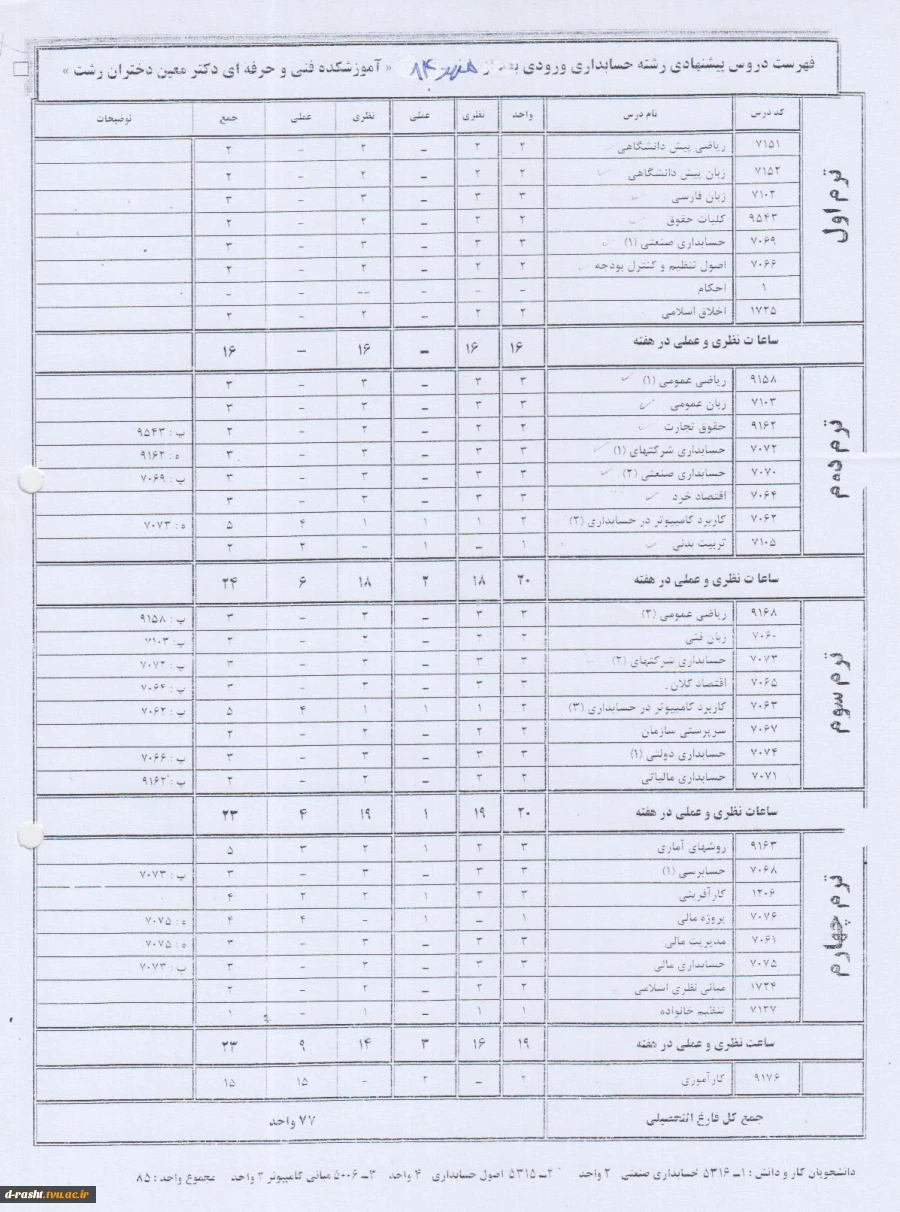 فهرست دروس پیشنهادی رشته حسابداری ورودی مهر ۸۴ « آموزشکده فنی و حرفه ای دکتر معین دختران رشت »
کد درس نام درس واحد نظری عملی نظری عملی جمع توضیحات
ترم اول
۷۱۵۱ ریاضی پیش دانشگاهی ۲ ۲ - ۲ - ۲
۷۱۵۲ زبان پیش دانشگاهی ۲ ۲ - ۲ - ۲
۷۱۰۲ زبان فارسی ۳ ۳ - ۳ - ۳
۹۵۴۳ کلیات حقوق ۲ ۲ - ۲ - ۲
۷۰۶۹ حسابداری صنعتی (۱) ۳ ۳ - ۳ - ۳
۷۰۶۶ اصول تنظیم و کنترل بودجه ۲ ۲ - ۲ - ۲
۱ احکام - - - -- - -
۱۷۲۵ اخلاق اسلامی ۲ ۲ - ۲ - ۲
ساعات نظری و عملی در هفته ۱۶ ۱۶ - ۱۶ - ۱۶
ترم دوم
۹۱۵۸ ریاضی عمومی (۱) ۳ ۳ - ۳ - ۳
۷۱۰۳ زبان عمومی ۳ ۳ - ۳ - ۳
۹۱۶۲ حقوق تجارت ۲ ۲ - ۲ - ۲ پ : ۹۵۴۳
۷۰۷۲ حسابداری شرکتهای (۱) ۳ ۳ - ۳ - ۳ ه : ۹۱۶۲
۷۰۷۰ حسابداری صنعتی (۲) ۳ ۳ - ۳ - ۳ پ : ۷۰۶۹
۷۰۶۴ اقتصاد خرد ۳ ۳ - ۳ - ۳
۷۰۶۲ کاربرد کامپیوتر در حسابداری (۲) ۲ ۱ ۱ ۱ ۴ ۵ ه : ۷۰۷۳
۷۱۰۵ تربیت بدنی ۱ - ۱ - ۲ ۲
ساعات نظری و عملی در هفته ۲۰ ۱۸ ۲ ۱۸ ۶ ۲۴
ترم سوم
۹۱۶۸ ریاضی عمومی (۲) ۳ ۳ - ۳ - ۳ پ : ۹۱۵۸
۷۰۶۰ زبان فنی ۲ ۲ - ۲ - ۲ پ : ۷۱۰۳
۷۰۷۳ حسابداری شرکتهای (۲) ۳ ۳ - ۳ - ۳ پ : ۷۰۷۲
۷۰۶۵ اقتصاد کلان ۳ ۳ - ۳ - ۳ پ : ۷۰۶۴
۷۰۶۳ کاربرد کامپیوتر در حسابداری (۳) ۲ ۱ ۱ ۱ ۴ ۵ پ : ۷۰۶۲
۷۰۶۷ سرپرستی سازمان ۲ ۲ - ۲ - ۲
۷۰۷۴ حسابداری دولتی (۱) ۳ ۳ - ۳ - ۳ پ : ۷۰۶۶
۷۰۷۱ حسابداری مالیاتی ۲ ۲ - ۲ - ۲ پ : ۹۱۶۲
ساعات نظری و عملی در هفته ۲۰ ۱۹ ۱ ۱۹ ۴ ۲۳
ترم چهارم
۹۱۶۳ روشهای آماری ۳ ۲ ۱ ۲ ۳ ۵
۷۰۶۸ حسابرسی (۱) ۳ ۳ - ۳ - ۳ پ : ۷۰۷۳
۱۲۰۶ کارآفرینی ۳ ۲ ۱ ۲ ۲ ۴
۷۰۷۶ پروژه مالی ۱ - ۱ - ۴ ۴ ه : ۷۰۷۵
۷۰۶۱ مدیریت مالی ۳ ۳ - ۳ - ۳ ه : ۷۰۷۵
۷۰۷۵ حسابداری مالی ۳ ۳ - ۳ - ۳ پ : ۷۰۷۳
۱۷۲۴ مبانی نظری اسلامی ۲ ۲ - ۲ - ۲
۷۱۲۷ تنظیم خانواده ۱ ۱ - ۱ - ۱
ساعت نظری و عملی در هفته ۱۹ ۱۶ ۳ ۱۴ ۹ ۲۳
۹۱۷۶ کارآموزی ۲ - ۲ - ۱۵ ۱۵
جمع کل فارغ التحصیلی ۷۷ واحد
دانشجویان کار و دانش : ۱ـ ۵۳۱۶ حسابداری صنعتی ۲ واحد ۲ـ ۵۳۱۵ اصول حسابداری ۴ واحد ۳ـ ۵۰۰۶ مبانی کامپیوتر ۲ واحد مجموع واحد : ۸۵
d-rasht.tvu.ac.ir